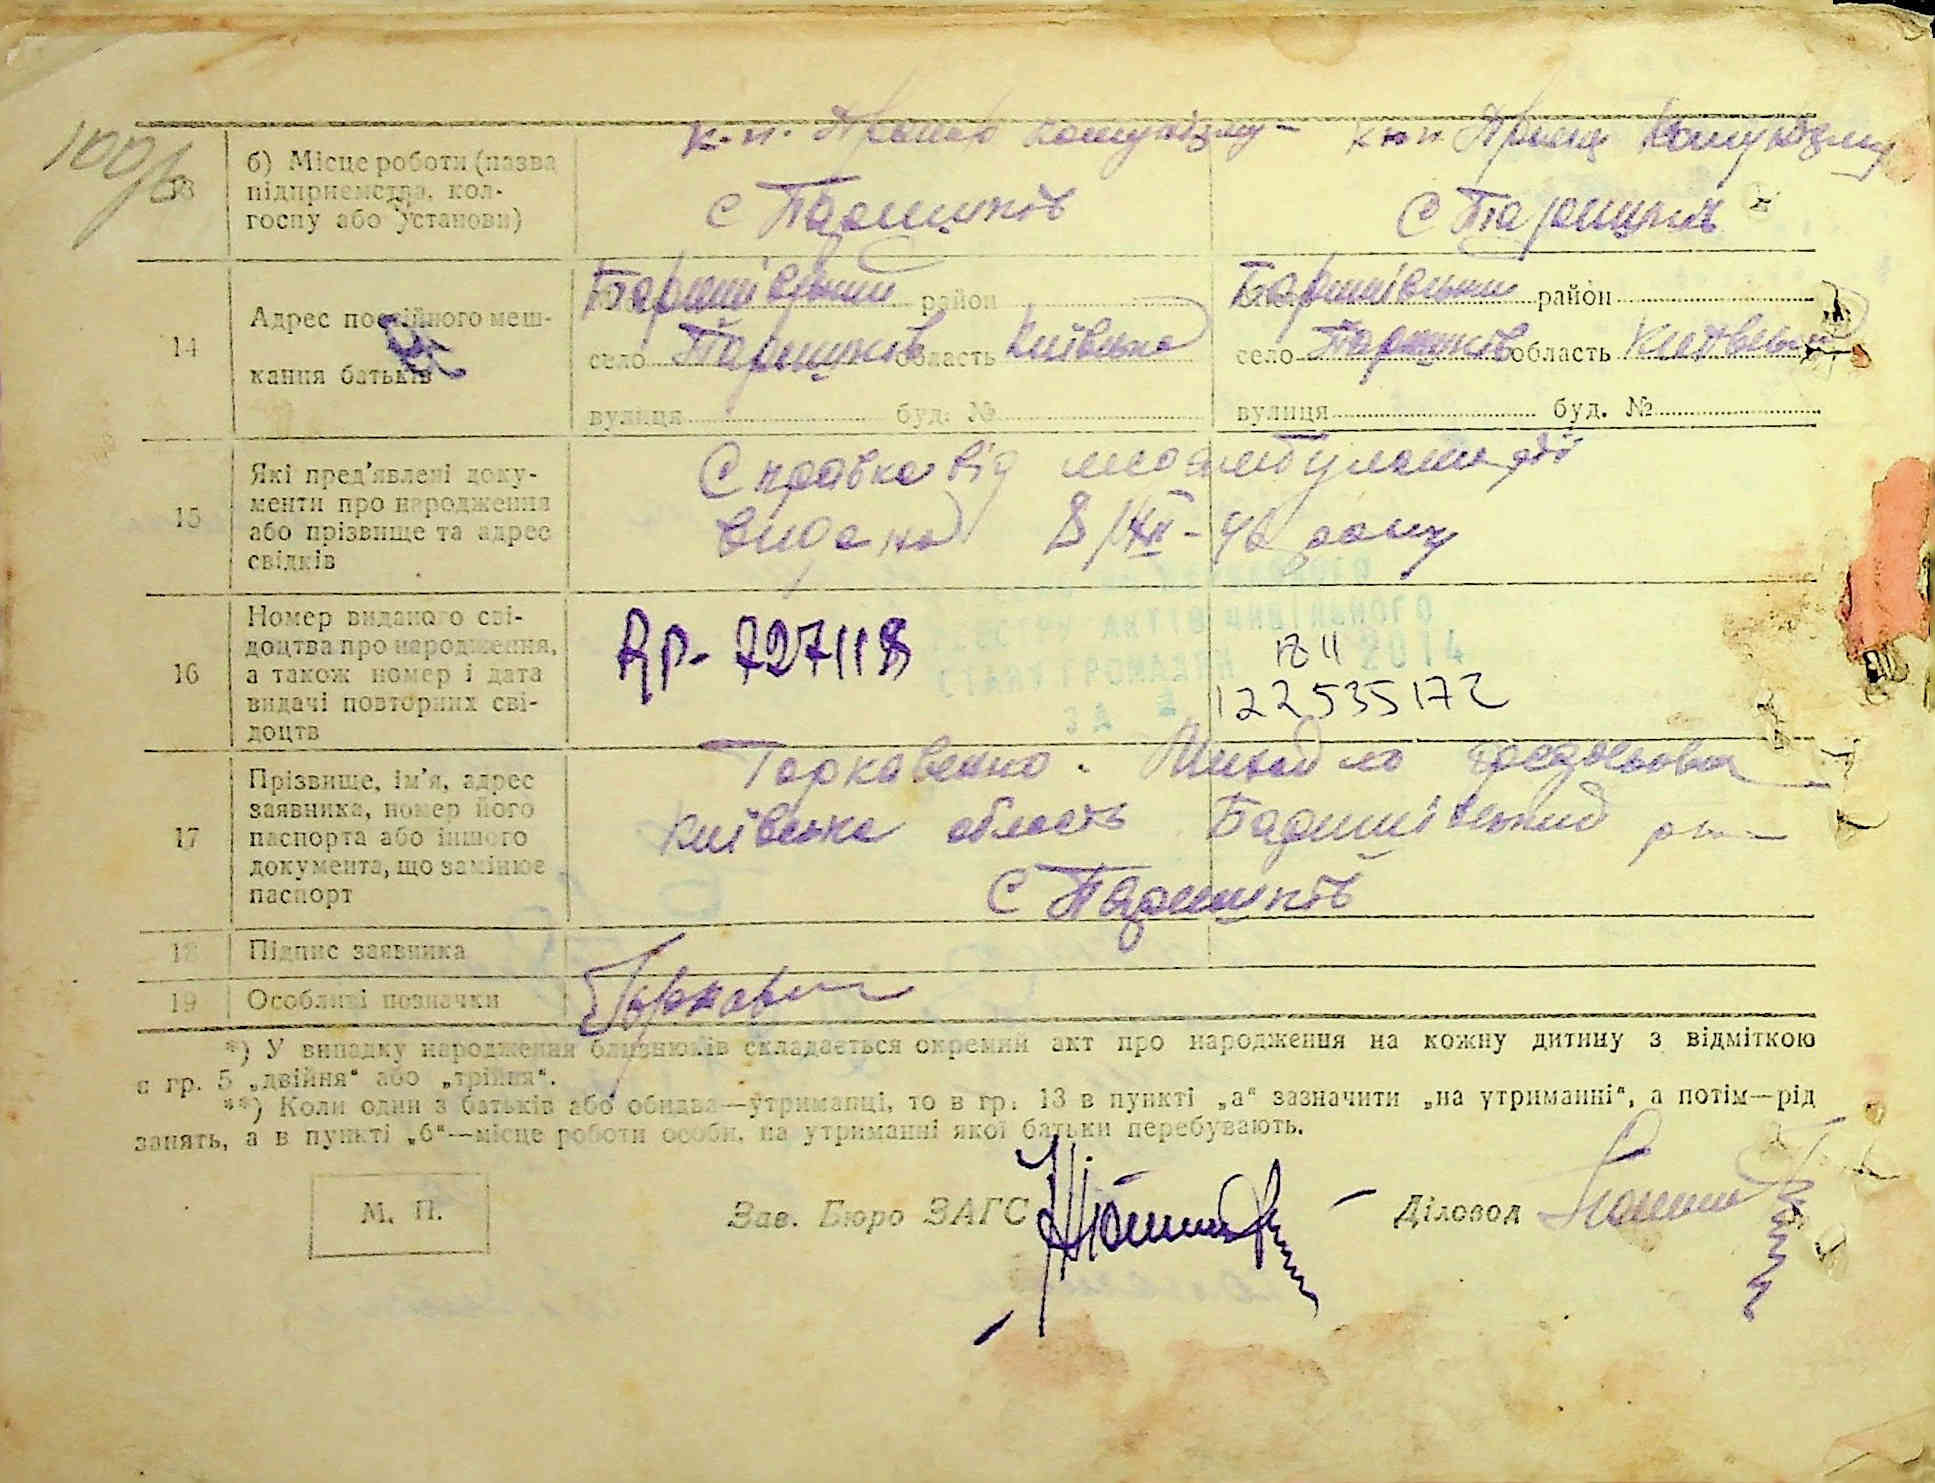 100/б
13
б) Місце роботи (назва
підприємства, кол-
госпу або установи)
к-п. Прапор комунізму
с Паришків
к-п Прапор Комунізму
с Паришків
14
Адрес постійного меш-
кання батьків
Баришівський район
село Паришків область Київська
вулиця буд. №
Баришівський район
село Паришків область Київська
вулиця буд. №
15
Які пред'явлені доку-
менти про народження
або прізвище та адрес
свідків
Справка від
видана 8/XII-46 року
16
Номер виданого сві-
доцтва про народження,
а також номер і дата
видачі повторних сві-
доцтв
727118
2014
122535172
17
Прізвище, ім'я, адрес
заявника, номер його
паспорта або іншого
документа, що замінює
паспорт
Торкавенко. Михайло
Київська область Баришівський
с Паришків
18
Підпис заявника
19
Особливі позначки
*) У випадку народження близнюків складається окремий акт про народження на кожну дитину з відміткою
в гр. 5 „двійня“ або „трійня“.
**) Коли один з батьків або обидва—утриманці, то в гр. 13 в пункті „а“ зазначити „на утриманні“, а потім—рід
занять, а в пункті „б“—місце роботи особи, на утриманні якої батьки перебувають.
М. П.
Зав. Бюро ЗАГС
Діловод